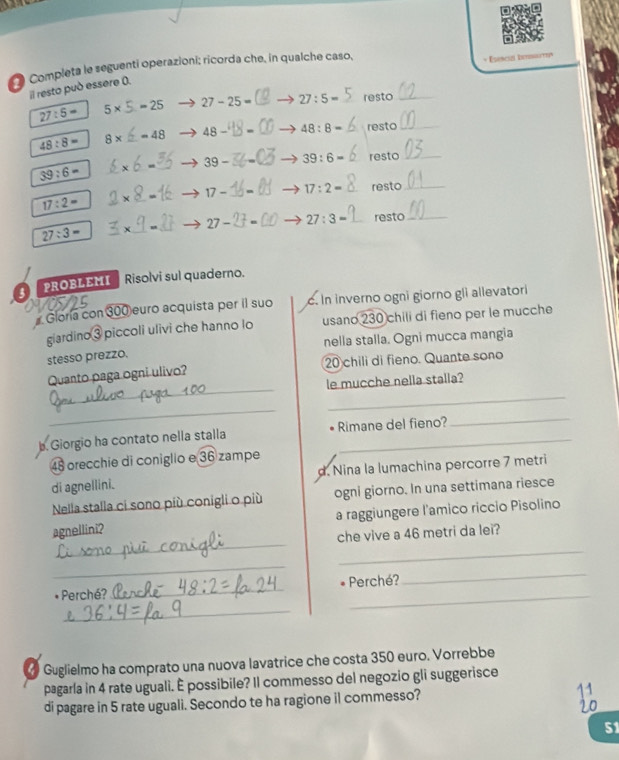 2 Completa le seguenti operazioni; ricorda che, in qualche caso,
il resto può essere 0.
27 : 5 = 5 × 5 = 25 → 27 - 25 = 02 → 27 : 5 = 5 resto 02
48 : 8 = 8 × 6 = 48 → 48 - 48 = 00 → 48 : 8 = 6 resto 00
39 : 6 = 6 × 6 = 36 → 39 - 36 = 03 → 39 : 6 = 6 resto 03
17 : 2 = 2 × 8 = 16 → 17 - 16 = 01 → 17 : 2 = 8 resto 01
27 : 3 = 3 × 9 = 27 → 27 - 27 = 00 → 27 : 3 = 9 resto 00
3 PROBLEMI Risolvi sul quaderno.
09/05/25
Gloria con 300 euro acquista per il suo
giardino 3 piccoli ulivi che hanno lo
stesso prezzo.
Quanto paga ogni ulivo?
Ogni ulivo paga 100
b. Giorgio ha contato nella stalla
48 orecchie di coniglio e 36 zampe
di agnellini.
Nella stalla ci sono più conigli o più
agnellini?
Ci sono più conigli
• Perché? Perché 48:2= fa 24
e 36:4= fa 9
c. In inverno ogni giorno gli allevatori
usano 230 chili di fieno per le mucche
nella stalla. Ogni mucca mangia
20 chili di fieno. Quante sono
le mucche nella stalla?
• Rimane del fieno?
d. Nina la lumachina percorre 7 metri
ogni giorno. In una settimana riesce
a raggiungere l'amico riccio Pisolino
che vive a 46 metri da lei?
• Perché?
4 Guglielmo ha comprato una nuova lavatrice che costa 350 euro. Vorrebbe
pagarla in 4 rate uguali. È possibile? Il commesso del negozio gli suggerisce
di pagare in 5 rate uguali. Secondo te ha ragione il commesso?
11
20
51